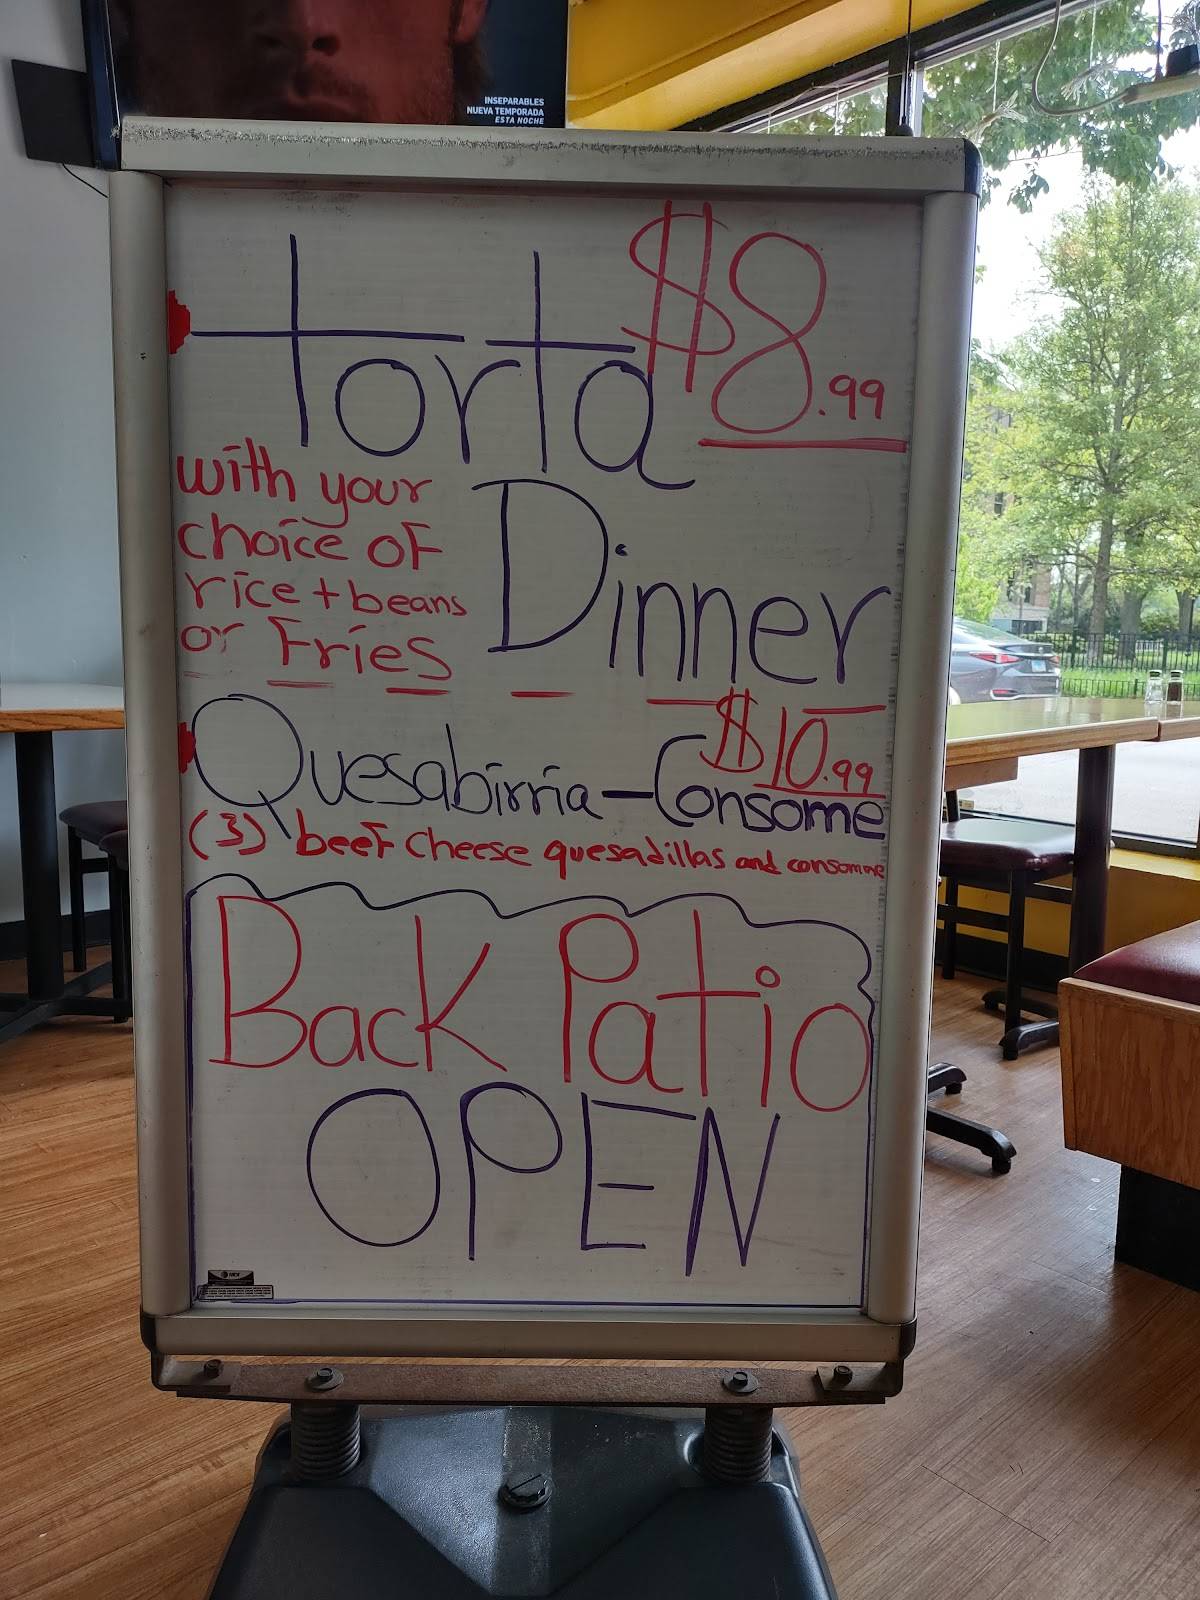 INSEPARABLES
NUEVA TEMPORADA
ESTA NOCHE
Torta $8.99
with your
choice of
rice + beans
or Fries
Dinner
$10.99
Quesabirria - Consome
(3) beef cheese quesadillas and consomme
Back Patio
OPEN